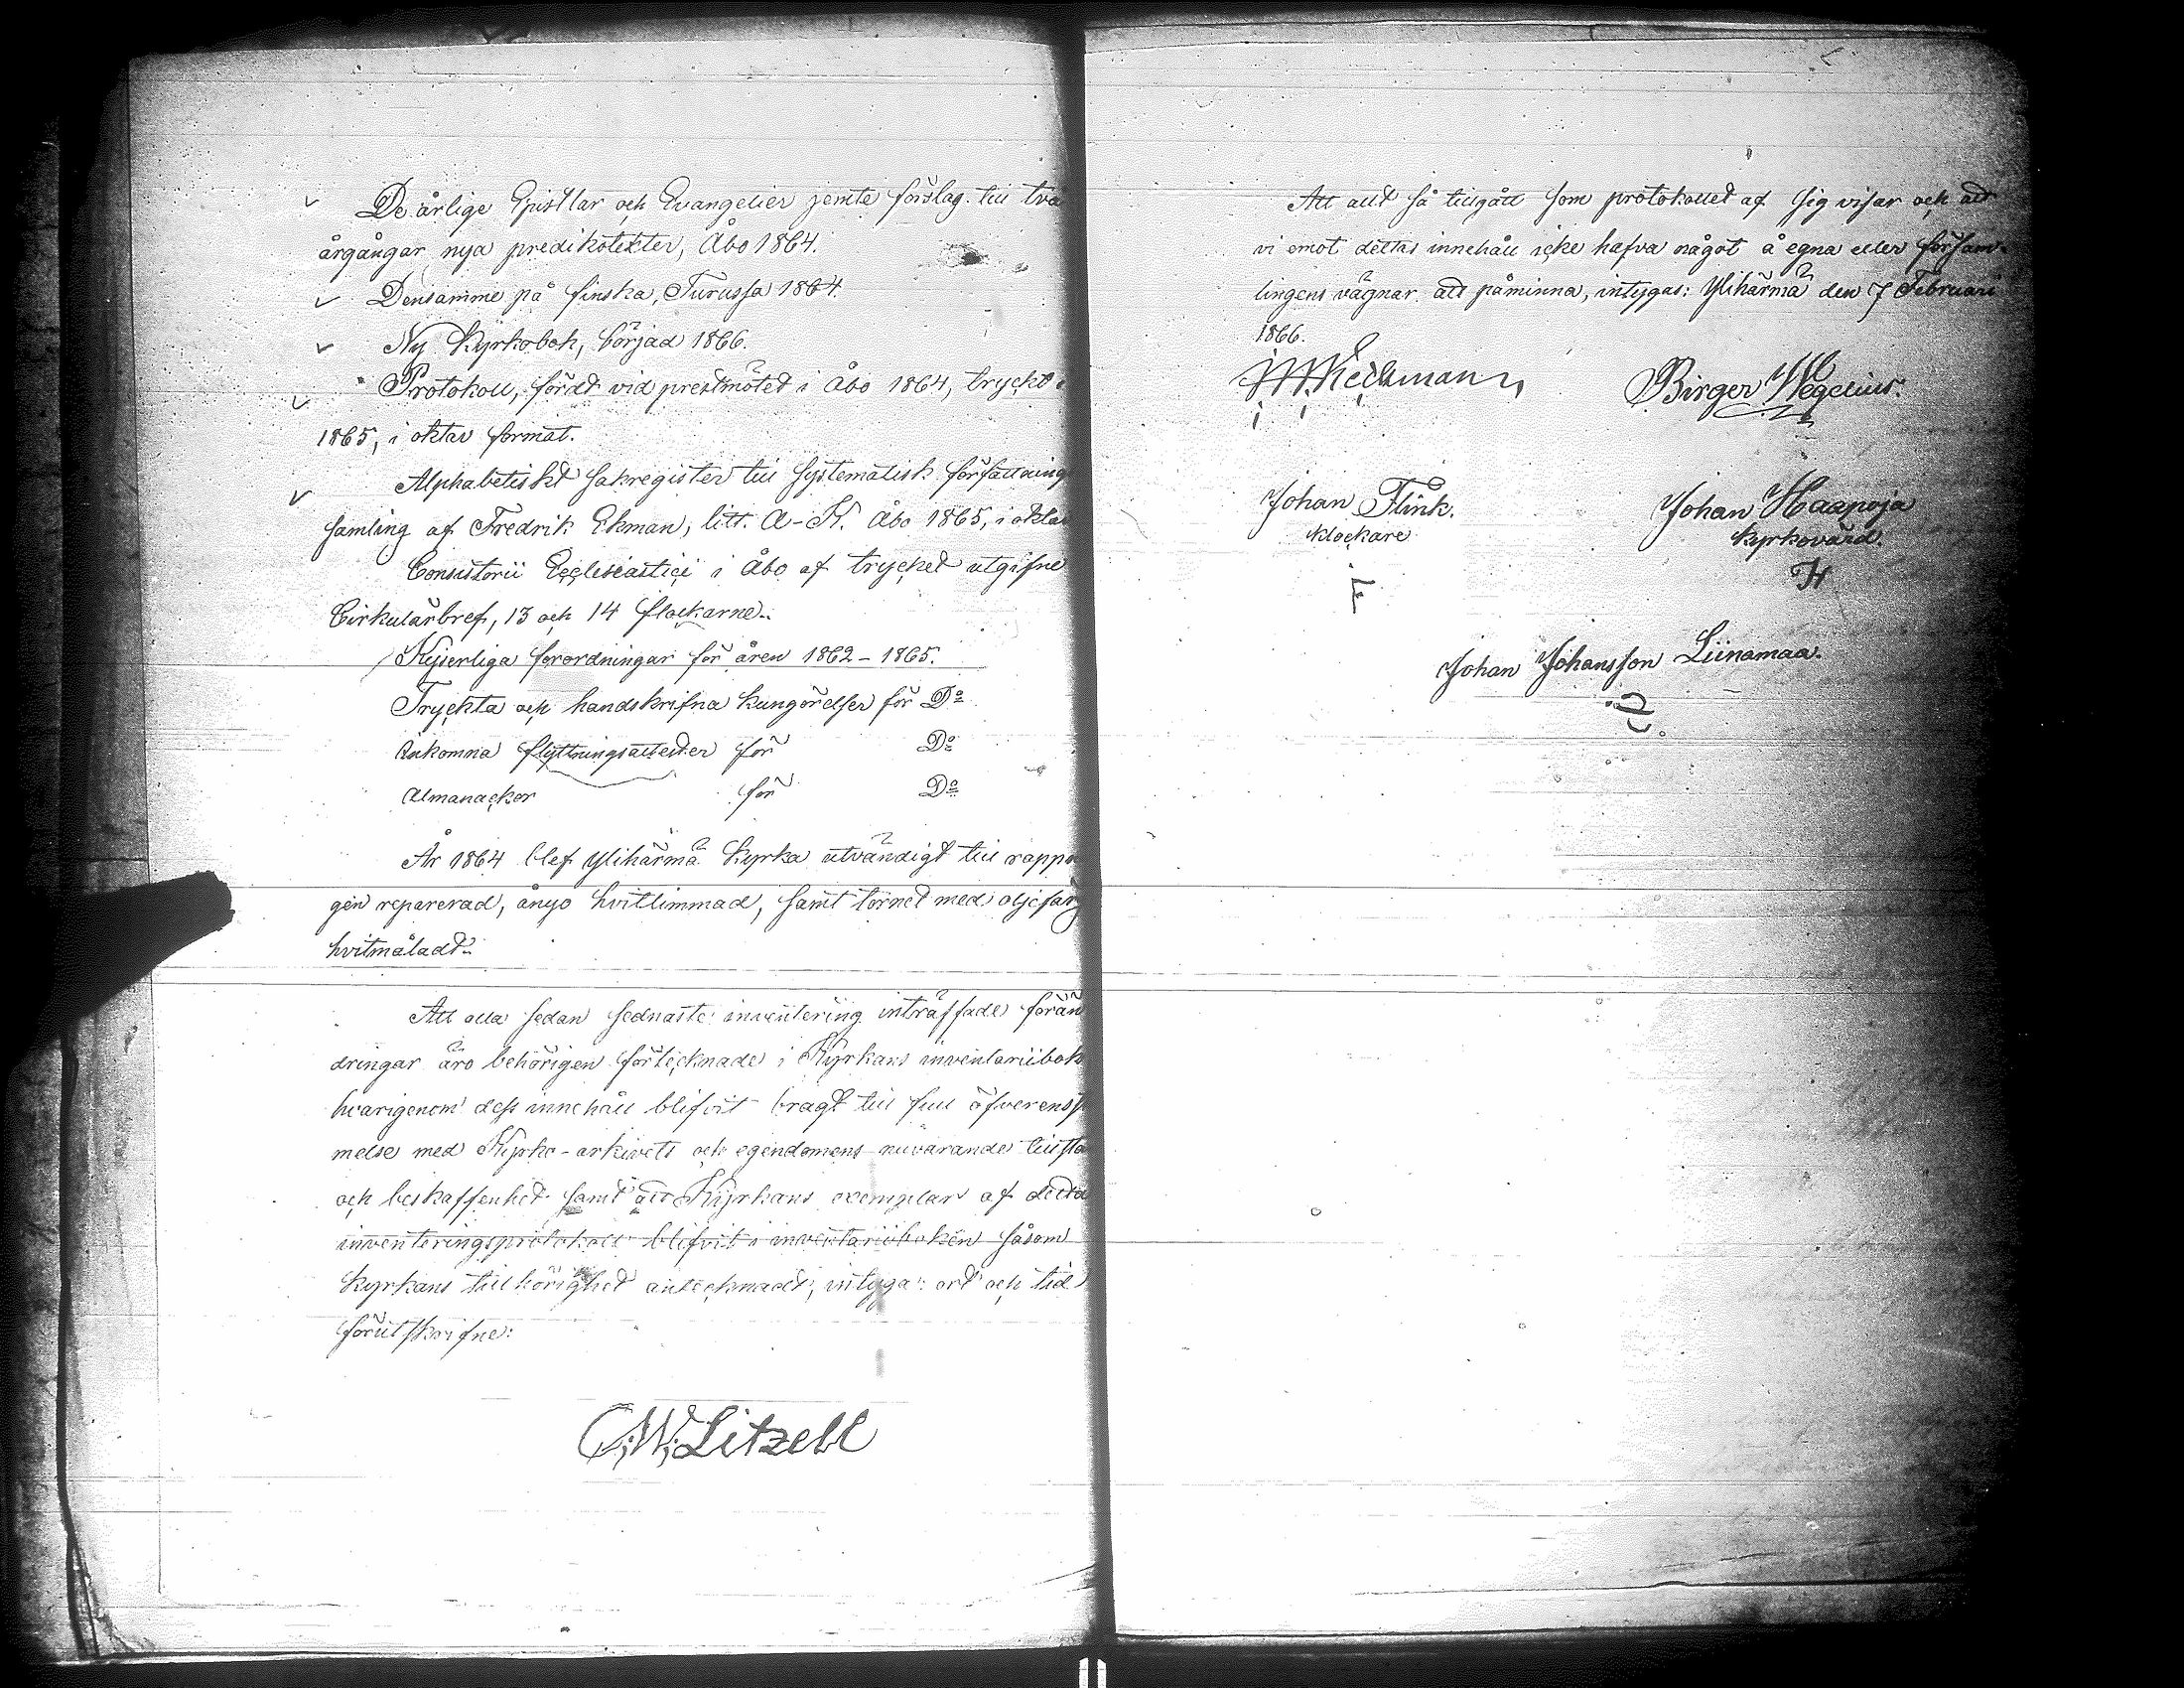 De årlige Epistlar och Evangelier jemte förslag till två
årgångar nya predikotexter, Åbo 1864.
Densamme på finska, Turussa 1864.
Ny Kyrkobok, börjad 1866.
Protokoll, fördt vid prestmötet i Åbo 1864, tryckt
1865, i oktav format.
Alphabetiskt sakregister till systematisk författning
samling af Fredrik Ekman, litt. A-K. Åbo 1865, i oktav
Consistorii Ecclesiastici i Åbo af trycket utgifne
Cirkulärbref, 13 och 14 flockarne.
Kejserliga förordningar för åren 1862-1865.
Tryckta och handskrifna kungörelser för Do
Inkomna flyttningsattester för Do
Almanackor för Do
År 1864 blef Ylihärmä Kyrka utvändigt till rappn
gen reparerad, ånyo hvitlimmad, samt tornet med oljefärg
hvitmåladt.
Att alla sedan sednaste inventering inträffade förän
dringar äro behörigen förtecknade i Kyrkans inventariibok
hvarigenom dess innehåll blifvit bragt till full öfverenss
melse med Kyrko-arkivets och egendomens nuvarande tillsta
och beskaffenhet samt att Kyrkans exemplar af detta
inventeringsprotokoll blifvit i inventariiboken såsom
Kyrkans tillhörighet antecknadt, intyga: ort och tid
förutskrifne:
C.W. Litzell
Att allt så tillgått som protokollet af sig visar och att
vi emot dettas innehåll icke hafva något å egna eller försam-
lingens vägnar att påminna, intygas: Ylihärmä den 7 Februari
1866.
Birger Wegelius.
Johan Flink. Johan Haapoja
Klockare Kyrkovärd.
F H
Johan Johansson Liinamaa.